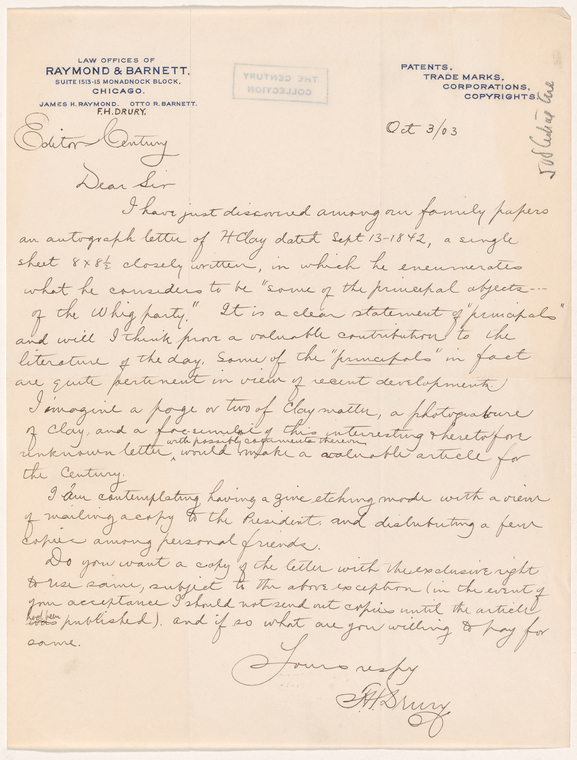 LAW OFFICES OF
RAYMOND & BARNETT.
SUITE 1513-15 MONADNOCK BLOCK,
CHICAGO.
JAMES H. RAYMOND. OTTO R. BARNETT.
F.H. DRURY.
PATENTS,
TRADE MARKS,
CORPORATIONS,
COPYRIGHTS.
THE CENTURY
COLLECTION
Oct 3/03
Editor Century
Dear Sir
I have just discovered among our family papers
an autograph letter of H Clay dated Sept 13-1842, a single
sheet 8 x 8½ closely written, in which he enumerates
what he considers to be "some of the principal objects---
of the Whig party." It is a clear statement of "principals"
and will I think prove a valuable contribution to the
literature of the day. Some of the "principals" in fact
are quite pertinent in view of recent developments.
I imagine a page or two of Clay matter, a photogravure
of Clay, and a facsimile of this interesting & heretofore
with possibly comments thereon
unknown letter would make a valuable article for
the Century.
I am contemplating having a zinc etching made with a view
of mailing a copy to the President, and distributing a few
copies among personal friends.
Do you want a copy of the letter with the exclusive right
to use same, subject to the above exception (in the event of
your acceptance I should not send out copies until the article
had been
published). and if so what are you willing to pay for
same.
Yours respy
F.H. Drury